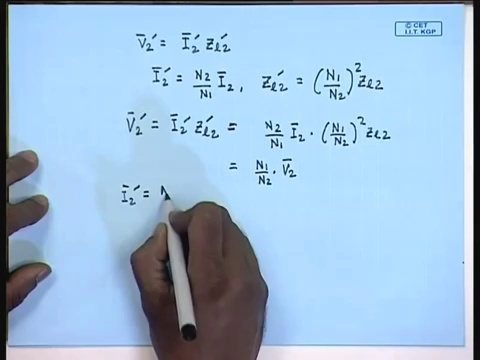 © CET
I.I.T. KGP
V̄₂′ = Ī₂′ Z_l2′
Ī₂′ = N₂/N₁ Ī₂, Z_l2′ = (N₁/N₂)² Z_l2
V̄₂′ = Ī₂′ Z_l2′ = N₂/N₁ Ī₂ · (N₁/N₂)² Z_l2
= N₁/N₂ · V̄₂
Ī₂′ = N